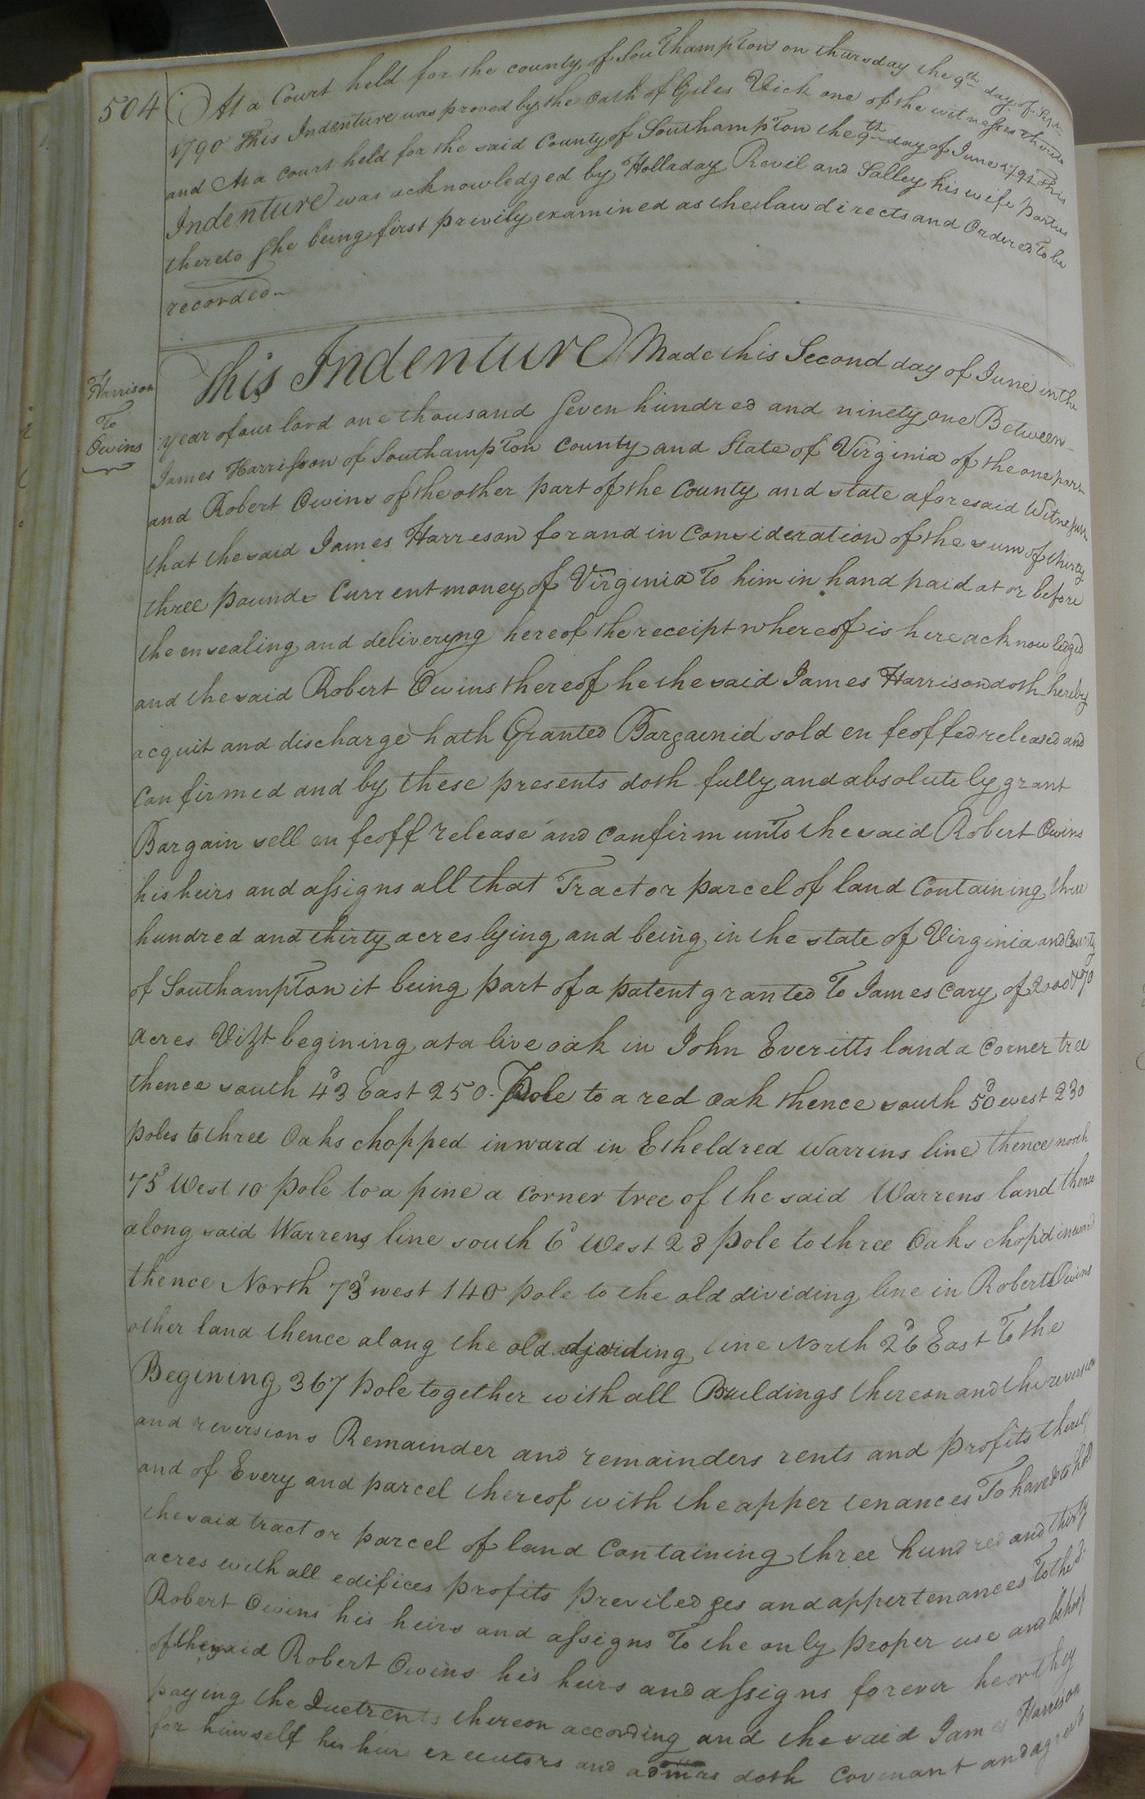 504
At a Court held for the county of Southampton on thursday the 9th day of Sepr.
1790 This Indenture was proved by the Oath of Giles Vick one of the witnesses thereto
and At a Court held for the said County of Southampton the 9th day of June 1791 This
Indenture was acknowledged by Holladay Revil and Salley his wife parties
thereto she being first privily examined as the law directs and Ordered to be
recorded
Harrison
To
Owins
This Indenture Made this Second day of June in the
year of our lord one thousand seven hundred and ninety one Between
James Harrisson of Southampton County and State of Virginia of the one part
and Robert Owins of the other part of the County and state aforesaid Witnesseth
that the said James Harreson for and in Consideration of the sum of thirty
three pounds Current money of Virginia To him in hand paid at or before
the ensealing and deliveryng hereof the receipt whereof is here acknowledged
and the said Robert Owins thereof he the said James Harrison doth hereby
acquit and discharge hath Granted Bargainid sold en feoffed released and
Confirmed and by these presents doth fully and absolutely grant
Bargain sell en feoff release and confirm unto the said Robert Owins
his heirs and assigns all that Tract or parcel of land Containing three
hundred and thirty acres lying and being in the state of Virginia and County
of Southampton it being part of a patent granted To James Cary of
acres Vizt begining at a live oak in John Everitts land a Corner tree
thence south 43° East 250 Pole to a red Oak thence south 50° west 230
poles to three Oaks chopped inward in Etheldred Warrins line thence north
75° West 10 pole to a pine a corner tree of the said Warrens land thence
along said Warrens line south 6° West 28 pole to three Oaks chop'd inward
thence North 73° west 140 pole to the old dividing line in Robert Owins
other land thence along the old dividing line North 26° East To the
Begining 367 pole together with all Buildings thereon and the reversion
and reversions Remainder and remainders rents and profits thereof
and of Every and parcel thereof with the apper tenances To have & to hold
the said tract or parcel of land Containing three hundred and thirty
acres with all edifices profits previledges and appertenances To the sd.
Robert Owins his heirs and assigns To the only proper use and behoof
of the said Robert Owins his heirs and assigns forever he or they
paying the Quetrents thereon according and the said James Harrison
for himself his heirs executors and admrs doth Covenant and agree to